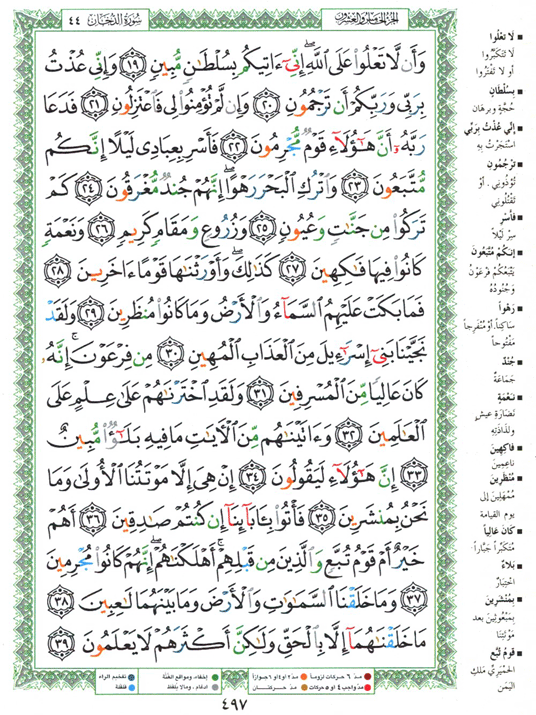 سُورَةُ الدُّخَانِ ٤٤
الجزء الخامس والعشرون
وَأَن لَّا تَعْلُوا۟ عَلَى ٱللَّهِ ۖ إِنِّىٓ ءَاتِيكُم بِسُلْطَـٰنٍ مُّبِينٍ ﴿١٩﴾ وَإِنِّى عُذْتُ
بِرَبِّى وَرَبِّكُمْ أَن تَرْجُمُونِ ﴿٢٠﴾ وَإِن لَّمْ تُؤْمِنُوا۟ لِى فَٱعْتَزِلُونِ ﴿٢١﴾ فَدَعَا
رَبَّهُۥٓ أَنَّ هَـٰٓؤُلَآءِ قَوْمٌ مُّجْرِمُونَ ﴿٢٢﴾ فَأَسْرِ بِعِبَادِى لَيْلًا إِنَّكُم
مُّتَّبَعُونَ ﴿٢٣﴾ وَٱتْرُكِ ٱلْبَحْرَ رَهْوًا ۖ إِنَّهُمْ جُندٌ مُّغْرَقُونَ ﴿٢٤﴾ كَمْ
تَرَكُوا۟ مِن جَنَّـٰتٍ وَعُيُونٍ ﴿٢٥﴾ وَزُرُوعٍ وَمَقَامٍ كَرِيمٍ ﴿٢٦﴾ وَنَعْمَةٍ
كَانُوا۟ فِيهَا فَـٰكِهِينَ ﴿٢٧﴾ كَذَٰلِكَ ۖ وَأَوْرَثْنَـٰهَا قَوْمًا ءَاخَرِينَ ﴿٢٨﴾
فَمَا بَكَتْ عَلَيْهِمُ ٱلسَّمَآءُ وَٱلْأَرْضُ وَمَا كَانُوا۟ مُنظَرِينَ ﴿٢٩﴾ وَلَقَدْ
نَجَّيْنَا بَنِىٓ إِسْرَٰٓءِيلَ مِنَ ٱلْعَذَابِ ٱلْمُهِينِ ﴿٣٠﴾ مِن فِرْعَوْنَ ۚ إِنَّهُۥ
كَانَ عَالِيًا مِّنَ ٱلْمُسْرِفِينَ ﴿٣١﴾ وَلَقَدِ ٱخْتَرْنَـٰهُمْ عَلَىٰ عِلْمٍ عَلَى
ٱلْعَـٰلَمِينَ ﴿٣٢﴾ وَءَاتَيْنَـٰهُم مِّنَ ٱلْـَٔايَـٰتِ مَا فِيهِ بَلَـٰٓؤٌا۟ مُّبِينٌ
﴿٣٣﴾ إِنَّ هَـٰٓؤُلَآءِ لَيَقُولُونَ ﴿٣٤﴾ إِنْ هِىَ إِلَّا مَوْتَتُنَا ٱلْأُولَىٰ وَمَا
نَحْنُ بِمُنشَرِينَ ﴿٣٥﴾ فَأْتُوا۟ بِـَٔابَآئِنَآ إِن كُنتُمْ صَـٰدِقِينَ ﴿٣٦﴾ أَهُمْ
خَيْرٌ أَمْ قَوْمُ تُبَّعٍ وَٱلَّذِينَ مِن قَبْلِهِمْ ۚ أَهْلَكْنَـٰهُمْ ۖ إِنَّهُمْ كَانُوا۟ مُجْرِمِينَ
﴿٣٧﴾ وَمَا خَلَقْنَا ٱلسَّمَـٰوَٰتِ وَٱلْأَرْضَ وَمَا بَيْنَهُمَا لَـٰعِبِينَ ﴿٣٨﴾
مَا خَلَقْنَـٰهُمَآ إِلَّا بِٱلْحَقِّ وَلَـٰكِنَّ أَكْثَرَهُمْ لَا يَعْلَمُونَ ﴿٣٩﴾
لا تَعْلُوا
لا تَتَكَبَّرُوا
أو لا تَفْتَرُوا
بِسُلْطَانٍ
حُجَّةٍ وبرهان
إِنِّي عُذْتُ بِرَبِّي
اسْتَجَرْتُ بِهِ
تَرْجُمُونِ
تُؤْذُونِي . أَوْ
تَقْتُلُونِي
فَأَسْرِ
سِرْ لَيْلاً
إِنَّكُمْ مُتَّبَعُونَ
يَتْبَعُكُمْ فِرْعَوْنُ
وَجُنُودُهُ
رَهْواً
سَاكِناً. أَوْ مُنْفَرِجاً
مَفْتُوحاً
جُنْدٌ
جَمَاعَةٌ
نَعْمَةٍ
نَضَارَةِ عَيْشٍ
ولَذَاذَتِهِ
فَاكِهِينَ
نَاعِمِينَ
مُنْظَرِينَ
مُمْهَلِينَ إلى
يوم القيامة
كَانَ عَالِياً
مُتَكَبِّراً جَبَّاراً
بَلاءٌ
اخْتِبَارٌ
بِمُنْشَرِينَ
بِمَبْعُوثِينَ بعد
مَوْتَتِنَا
قَوْمُ تُبَّعٍ
الحِمْيَرِيِّ مَلِكِ
اليَمَنِ
مدّ ٦ حركات لزوماً
مدّ ٢ أو ٤ أو ٦ جوازاً
إخفاء، ومواقع الغُنَّة
تفخيم الراء
مدّ واجب ٤ أو ٥ حركات
مدّ حركتان
ادغام ، ومالا يُلفظ
قلقلة
٤٩٧